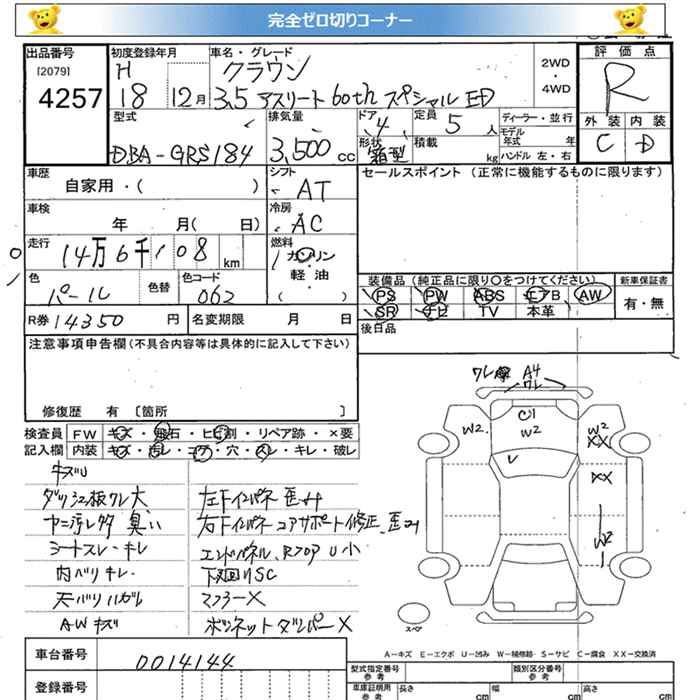 完全ゼロ切りコーナー
出品番号
[2079]
4257
初度登録年月
H
18 12月
車名・グレード
クラウン
3.5 アスリート 60th スペシャル ED
2WD
・
4WD
評価点
R
外装 内装
C D
型式
DBA-GRS184
排気量
3,500 cc
ドア
4
形状
箱型
定員
5 人
積載
kg
ディーラー・並行
モデル
年式 年
ハンドル 左・右
車歴
自家用・( )
シフト
AT
セールスポイント (正常に機能するものに限ります)
車検
年 月( 日)
冷房
AC
走行
14万6千108 km
燃料
ガソリン
軽・油
( )
色
パール
色替
色コード
062
装備品 (純正品に限り○をつけてください)
PS PW ABS エアB AW
SR ナビ TV 本革
新車保証書
有・無
R券 14350 円
名変期限 月 日
後日品
注意事項申告欄 (不具合内容等は具体的に記入して下さい)
修復歴 有 [箇所 ]
検査員
記入欄
FW キズ・飛石・ヒビ割・リペア跡・×要
内装 キズ・汚レ・コゲ・穴・スレ・キレ・破レ
キズU
ダッシュ板ワレ大
ヤニ汚レ多 臭い
シートスレ・キレ
内バリキレ
天バリハガレ
AWキズ
左下インパネ歪み
右下インパネ コアサポート修正、歪み
エンドパネル、Rフロア U小
下廻りSC
マフラーX
ボンネットダンパーX
ワレ A4
ワレ
C1
W2
W2
W2
XX
XX
W2
スペア
A－キズ E－エクボ U－凹み W－補修跡・S－サビ C－腐食 XX－交換済
車台番号
0014144
登録番号
型式指定番号
参考
類別区分番号
参考
車庫証明用
参考
長さ cm
幅 cm
高さ cm